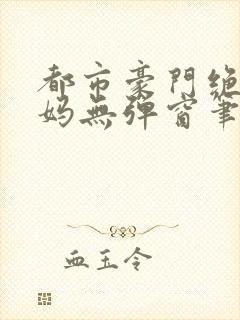 都市豪門絕
妈無弹窗筆
血玉令